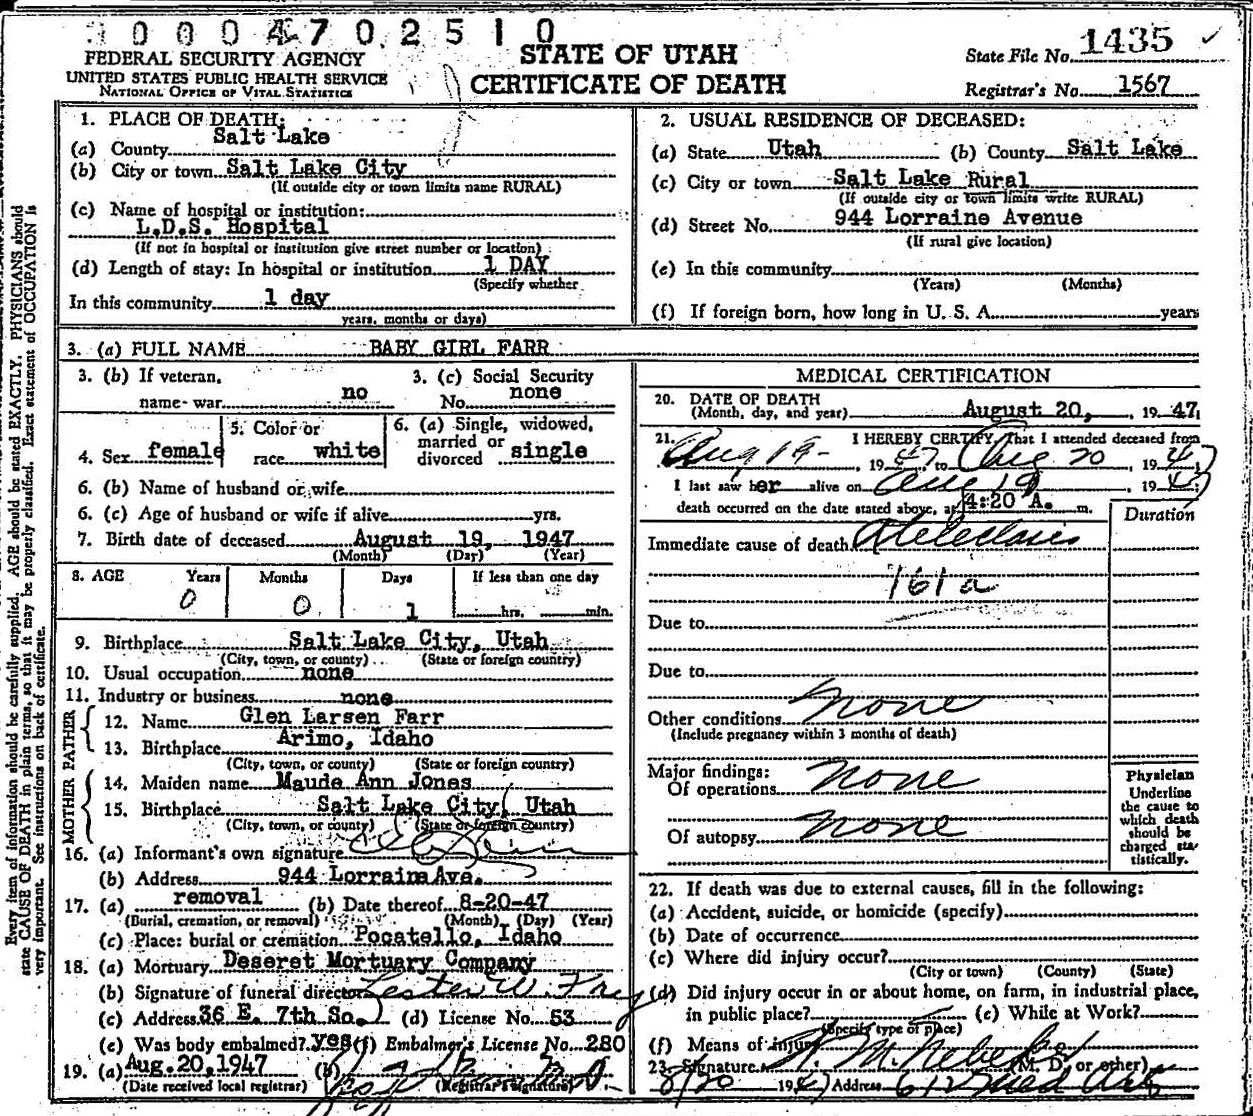 0004702510
FEDERAL SECURITY AGENCY
UNITED STATES PUBLIC HEALTH SERVICE
NATIONAL OFFICE OF VITAL STATISTICS
STATE OF UTAH
CERTIFICATE OF DEATH
State File No. 1435 ✓
Registrar's No. 1567
Every item of information should be carefully supplied. AGE should be stated EXACTLY. PHYSICIANS should
state CAUSE OF DEATH in plain terms, so that it may be properly classified. Exact statement of OCCUPATION is
very important. See instructions on back of certificate.
1. PLACE OF DEATH:
(a) County Salt Lake
(b) City or town Salt Lake City
(If outside city or town limits name RURAL)
(c) Name of hospital or institution:
L.D.S. Hospital
(If not in hospital or institution give street number or location)
(d) Length of stay: In hospital or institution 1 DAY
(Specify whether
In this community 1 day
years, months or days)
2. USUAL RESIDENCE OF DECEASED:
(a) State Utah (b) County Salt Lake
(c) City or town Salt Lake Rural
(If outside city or town limits write RURAL)
(d) Street No. 944 Lorraine Avenue
(If rural give location)
(e) In this community
(Years) (Months)
(f) If foreign born, how long in U. S. A. years
3. (a) FULL NAME BABY GIRL FARR
3. (b) If veteran,
name war no
3. (c) Social Security
No. none
4. Sex female
5. Color or
race white
6. (a) Single, widowed,
married or
divorced single
6. (b) Name of husband or wife
6. (c) Age of husband or wife if alive yrs.
7. Birth date of deceased August 19, 1947
(Month) (Day) (Year)
8. AGE Years Months Days If less than one day
0 0 1 hrs. min.
9. Birthplace Salt Lake City, Utah
(City, town, or county) (State or foreign country)
10. Usual occupation none
11. Industry or business none
FATHER
12. Name Glen Larsen Farr
13. Birthplace Arimo, Idaho
(City, town, or county) (State or foreign country)
MOTHER
14. Maiden name Maude Ann Jones
15. Birthplace Salt Lake City, Utah
(City, town, or county) (State or foreign country)
16. (a) Informant's own signature
(b) Address 944 Lorraine Ave.
17. (a) removal (b) Date thereof 8-20-47
(Burial, cremation, or removal) (Month) (Day) (Year)
(c) Place: burial or cremation Pocatello, Idaho
18. (a) Mortuary Deseret Mortuary Company
(b) Signature of funeral director Lester W.
(c) Address 36 E. 7th So. (d) License No. 53
(e) Was body embalmed? yes (f) Embalmer's License No. 280
19. (a) Aug. 20, 1947 (b)
(Date received local registrar) (Registrar's signature)
MEDICAL CERTIFICATION
20. DATE OF DEATH
(Month, day, and year) August 20, , 19 47
21. I HEREBY CERTIFY, That I attended deceased from
Aug 19 - , 19 47 to Aug 20 , 19 47
I last saw her alive on Aug 19 , 19 47
death occurred on the date stated above, at 4:20 A. m.
Duration
Immediate cause of death Atelectasis
161a
Due to
Due to
Other conditions none
(Include pregnancy within 3 months of death)
Major findings:
Of operations none
Of autopsy none
Physician
Underline
the cause to
which death
should be
charged sta-
tistically.
22. If death was due to external causes, fill in the following:
(a) Accident, suicide, or homicide (specify)
(b) Date of occurrence
(c) Where did injury occur?
(City or town) (County) (State)
(d) Did injury occur in or about home, on farm, in industrial place,
in public place? (e) While at Work?
(Specify type of place)
(f) Means of injury
23. Signature (M. D. or other)
8/20 1947 Address 612 Med Arts